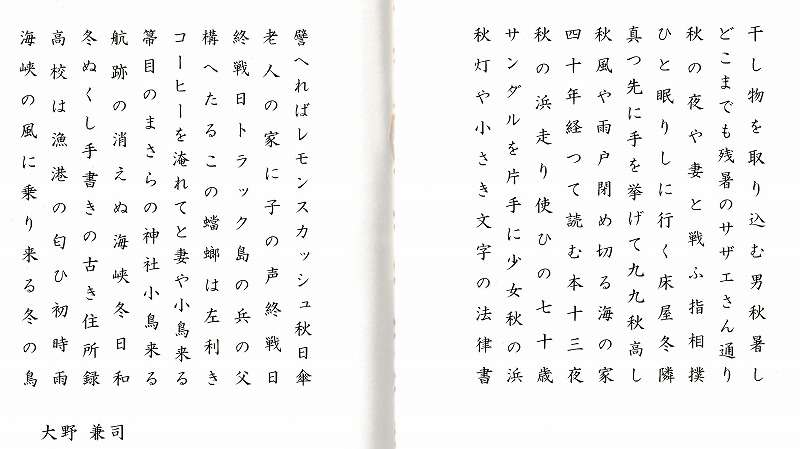 干し物を取り込む男秋暑し
どこまでも残暑のサザエさん通り
秋の夜や妻と戦ふ指相撲
ひと眠りしに行く床屋冬隣
真つ先に手を挙げて九九秋高し
秋風や雨戸閉め切る海の家
四十年経つて読む本十三夜
秋の浜走り使ひの七十歳
サンダルを片手に少女秋の浜
秋灯や小さき文字の法律書
譬へればレモンスカッシュ秋日傘
老人の家に子の声終戦日
終戦日トラック島の兵の父
構へたるこの蟷螂は左利き
コーヒーを淹れてと妻や小鳥来る
箒目のまさらの神社小鳥来る
航跡の消えぬ海峡冬日和
冬ぬくし手書きの古き住所録
高校は漁港の匂ひ初時雨
海峡の風に乗り来る冬の鳥
大野 兼司